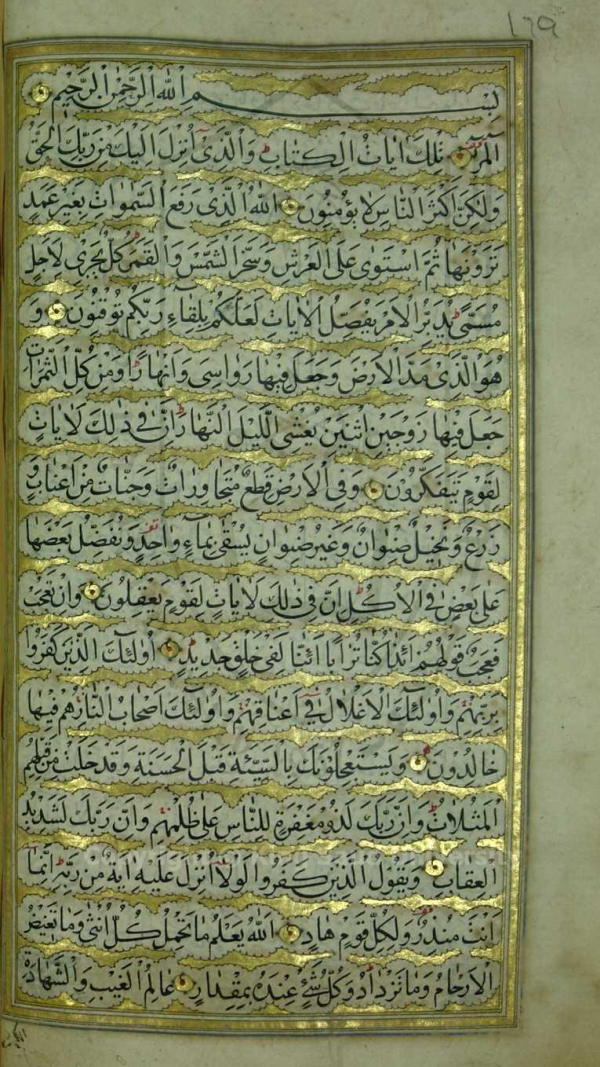 ١٦٩
بِسْمِ اللهِ الرَّحْمٰنِ الرَّحِيمِ
الٓمٓرٰ تِلْكَ اٰيَاتُ الْكِتَابِ وَالَّذِىٓ اُنْزِلَ اِلَيْكَ مِنْ رَبِّكَ الْحَقُّ
وَلٰكِنَّ اَكْثَرَ النَّاسِ لَا يُؤْمِنُونَ اَللهُ الَّذِى رَفَعَ السَّمٰوَاتِ بِغَيْرِ عَمَدٍ
تَرَوْنَهَا ثُمَّ اسْتَوٰى عَلَى الْعَرْشِ وَسَخَّرَ الشَّمْسَ وَالْقَمَرَ كُلٌّ يَجْرِى لِاَجَلٍ
مُسَمًّى يُدَبِّرُ الْاَمْرَ يُفَصِّلُ الْاٰيَاتِ لَعَلَّكُمْ بِلِقَآءِ رَبِّكُمْ تُوقِنُونَ وَ
هُوَ الَّذِى مَدَّ الْاَرْضَ وَجَعَلَ فِيهَا رَوَاسِىَ وَاَنْهَارًا وَمِنْ كُلِّ الثَّمَرَاتِ
جَعَلَ فِيهَا زَوْجَيْنِ اثْنَيْنِ يُغْشِى الَّيْلَ النَّهَارَ اِنَّ فِى ذٰلِكَ لَاٰيَاتٍ
لِقَوْمٍ يَتَفَكَّرُونَ وَفِى الْاَرْضِ قِطَعٌ مُتَجَاوِرَاتٌ وَجَنَّاتٌ مِنْ اَعْنَابٍ وَ
زَرْعٌ وَنَخِيلٌ صِنْوَانٌ وَغَيْرُ صِنْوَانٍ يُسْقٰى بِمَآءٍ وَاحِدٍ وَنُفَضِّلُ بَعْضَهَا
عَلٰى بَعْضٍ فِى الْاُكُلِ اِنَّ فِى ذٰلِكَ لَاٰيَاتٍ لِقَوْمٍ يَعْقِلُونَ وَاِنْ تَعْجَبْ
فَعَجَبٌ قَوْلُهُمْ ءَاِذَا كُنَّا تُرَابًا ءَاِنَّا لَفِى خَلْقٍ جَدِيدٍ اُولٰٓئِكَ الَّذِينَ كَفَرُوا
بِرَبِّهِمْ وَاُولٰٓئِكَ الْاَغْلَالُ فِىٓ اَعْنَاقِهِمْ وَاُولٰٓئِكَ اَصْحَابُ النَّارِ هُمْ فِيهَا
خَالِدُونَ وَيَسْتَعْجِلُونَكَ بِالسَّيِّئَةِ قَبْلَ الْحَسَنَةِ وَقَدْ خَلَتْ مِنْ قَبْلِهِمُ
الْمَثُلَاتُ وَاِنَّ رَبَّكَ لَذُو مَغْفِرَةٍ لِلنَّاسِ عَلٰى ظُلْمِهِمْ وَاِنَّ رَبَّكَ لَشَدِيدُ
الْعِقَابِ وَيَقُولُ الَّذِينَ كَفَرُوا لَوْلَآ اُنْزِلَ عَلَيْهِ اٰيَةٌ مِنْ رَبِّهِ اِنَّمَآ
اَنْتَ مُنْذِرٌ وَلِكُلِّ قَوْمٍ هَادٍ اَللهُ يَعْلَمُ مَا تَحْمِلُ كُلُّ اُنْثٰى وَمَا تَغِيضُ
الْاَرْحَامُ وَمَا تَزْدَادُ وَكُلُّ شَىْءٍ عِنْدَهُ بِمِقْدَارٍ عَالِمُ الْغَيْبِ وَالشَّهَادَةِ